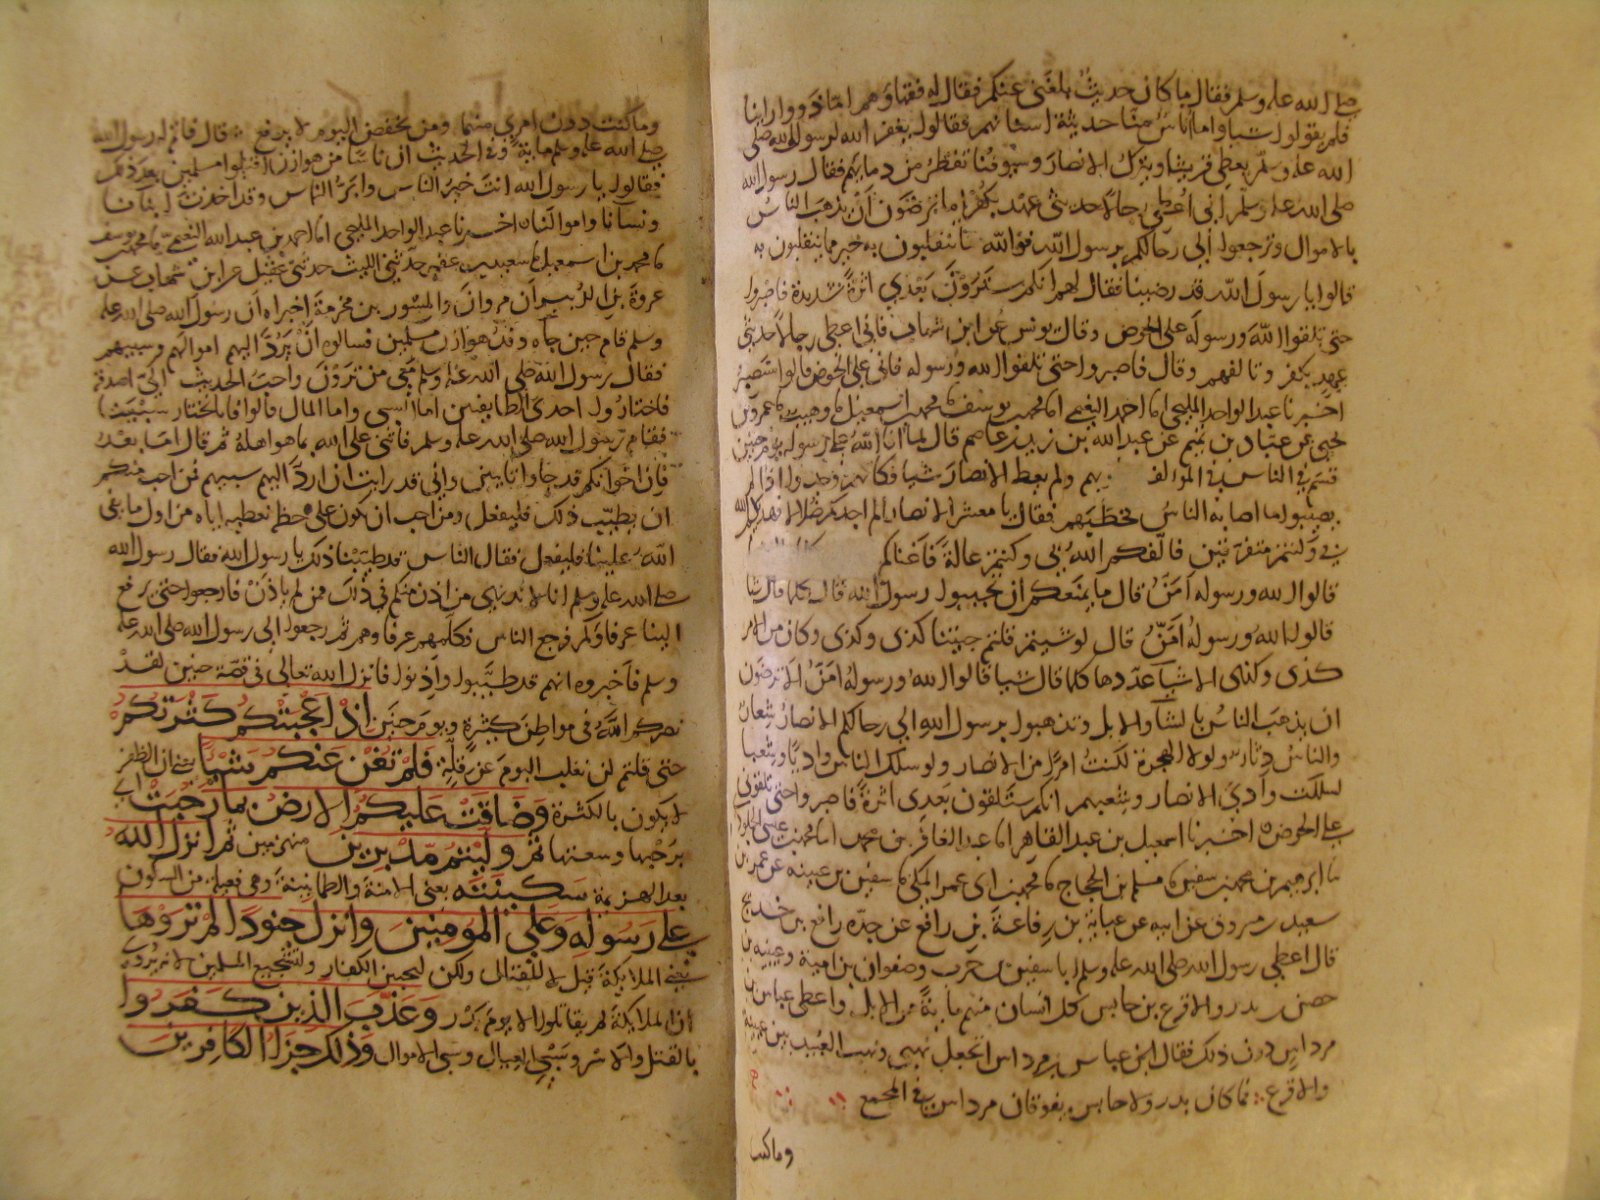 صلى الله عليه وسلم فقال ما كان حديث بلغني عنكم فقال له فقهاؤهم اما ذووا رأينا
فلم يقولوا شيا واما اناس منا حديثة اسنانهم فقالوا يغفر الله لرسول الله صلى
الله عليه وسلم يعطي قريشا ويترك الانصار وسيوفنا تقطر من دمايهم فقال رسول الله
صلى الله عليه وسلم اني اعطي رجالا حديثي عهد بكفر اما ترضون ان يذهب الناس
بالاموال وترجعوا الى رحالكم برسول الله فوالله ما تنقلبون به خير مما ينقلبون به
قالوا يا رسول الله قد رضينا فقال لهم انكم سترون بعدي اثرة شديدة فاصبروا
حتى تلقوا الله ورسوله على الحوض وقال يونس عن ابن شهاب فاني اعطي رجالا حديثي
عهد بكفر وتالفهم وقال فاصبروا حتى تلقوا الله ورسوله فاني على الحوض قالوا سنصبر
اخبرنا عبد الواحد المليحي انا احمد النعيمي انا محمد بن يوسف نا محمد بن اسمعيل نا وهيب نا عمرو بن
يحيى عن عباد بن تميم عن عبد الله بن زيد بن عاصم قال لما افا الله على رسوله يوم حنين
قسم في الناس في المولفة قلوبهم ولم يعط الانصار شيا فكانهم وجدوا اذ لم
يصبهم ما اصابه الناس فخطبهم فقال يا معشر الانصار الم اجدكم ضلالا فهداكم الله
بي وكنتم متفرقين فالفكم الله بي وكنتم عالة فاغناكم
قالوا الله ورسوله امن قال ما يمنعكم ان تجيبوا رسول الله قال كلما قال شيا
قالوا الله ورسوله امن قال لو شيتم قلتم جيتنا كذى وكذى وكان من الامر
كذى وكذى لاشيا عددها كلما قال شيا قالوا الله ورسوله امن الا ترضون
ان يذهب الناس بالشا والابل وتذهبوا برسول الله الى رحالكم الانصار شعار
والناس دثار ولولا الهجرة لكنت امرا من الانصار ولو سلك الناس واديا وشعبا
لسلكت وادي الانصار وشعبهم انكم ستلقون بعدي اثرة فاصبروا حتى تلقوني
على الحوض اخبرنا اسمعيل بن عبد القاهر انا عبد الغافر بن محمد انا محمد بن عيسى الجلودي
نا ابرهيم بن محمد بن سفين نا مسلم بن الحجاج نا محمد بن ابي عمر المكي نا سفين بن عيينة عن عمر بن
سعيد بن مسروق عن ابيه عن عباية بن رفاعة بن رافع عن جده رافع بن خديج
قال اعطى رسول الله صلى الله عليه وسلم ابا سفين بن حرب وصفوان بن امية وعيينة بن
حصن بن بدر والاقرع بن حابس كل انسان منهم ماية من الابل واعطى عباس بن
مرداس دون ذلك فقال ابن عباس بن مرداس اتجعل نهبي ونهب العبيد بين عيينة
والاقرع فما كان بدر ولا حابس يفوقان مرداس في المجمع
وما كنت
وما كنت دون امرئ منهما ومن تخفض اليوم لا يرفع قال فاتم له رسول الله
صلى الله عليه وسلم ماية وفي الحديث ان ناسا من هوازن اقبلوا مسلمين بعد ذلك
فقالوا يا رسول الله انت خير الناس وابر الناس وقد اخذت ابناءنا
ونسآنا واموالنا اخبرنا عبد الواحد المليحي انا احمد بن عبد الله النعيمي انا محمد بن يوسف
نا محمد بن اسمعيل نا سعيد بن عفير حدثني الليث حدثني عقيل عن ابن شهاب عن
عروة بن الزبير ان مروان والمسور بن مخرمة اخبراه ان رسول الله صلى الله عليه
وسلم قام حين جاه وفد هوازن مسلمين فسالوه ان يرد اليهم اموالهم وسبيهم
فقال رسول الله صلى الله عليه وسلم معي من ترون واحب الحديث الي اصدقه
فاختاروا احدى الطايفتين اما السبي واما المال قالوا فانا نختار سبينا
فقام رسول الله صلى الله عليه وسلم فاثنى على الله بما هو اهله ثم قال اما بعد
فان اخوانكم قد جاوا تايبين واني قد رايت ان ارد اليهم سبيهم فمن احب منكم
ان يطيب ذلك فليفعل ومن احب ان يكون على حظه نعطيه اياه من اول ما يفي
الله علينا فليفعل فقال الناس قد طيبنا ذلك يا رسول الله فقال رسول الله
صلى الله عليه وسلم انا لا ندري من اذن منكم في ذلك ممن لم ياذن فارجعوا حتى يرفع
الينا عرفاوكم فرجع الناس فكلمهم عرفاوهم ثم رجعوا الى رسول الله صلى الله عليه
وسلم فاخبروه انهم قد طيبوا واذنوا فانزل الله تعالى في قصة حنين لقد
نصركم الله في مواطن كثيرة ويوم حنين اذ اعجبتكم كثرتكم
حتى قلتم لن نغلب اليوم عن قلة فلم تغن عنكم شيئا يعني ان الظفر
لا يكون بالكثرة وضاقت عليكم الارض بما رحبت اي
برحبها وسعتها ثم وليتم مدبرين منهزمين ثم انزل الله
بعد الهزيمة سكينته يعني الامنة والطمانينة وهي فعيلة من السكون
على رسوله وعلى المؤمنين وانزل جنودا لم تروها
يعني الملايكة قيل لا للقتال ولكن لتجبين الكفار ولتشجيع المسلمين لانه يروى
ان الملايكة لم يقاتلوا الا يوم بدر وعذب الذين كفروا
بالقتل والاسر وسبي العيال وسبي الاموال وذلك جزاء الكافرين